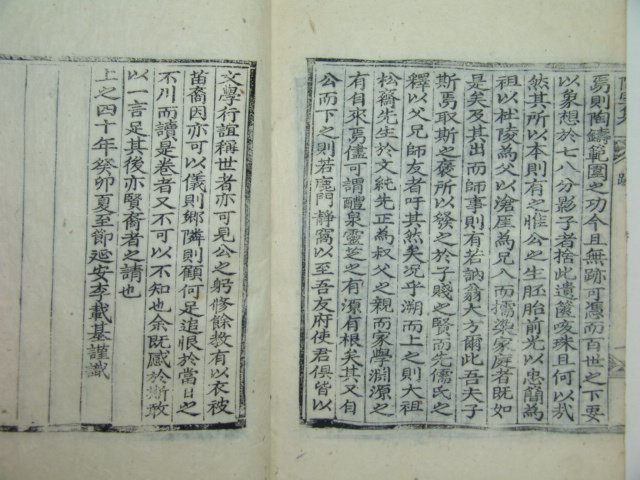 焉則陶鑄範圍之功今且無跡可憑而百世之下要
以象想於七八分影子者捨此遺篋咳珠且何以哉
然其所以本則有之惟公之生胚胎前光以忠簡為
祖以杜陵為父以滄厓為兄入而擩染家庭者既如
是矣及其出而師事則有若訥翁大方爾此吾夫子
斯焉取斯之褒所以發之於子賤之賢而先儒氏之
釋以父兄師友者吁其然矣況乎溯而上之則大祖
松齋先生於文純先正為叔父之親而家學淵源之
有自來焉儘可謂醴泉靈芝之有源有根矣其又自
公而下之則若鹿門靜窩以至吾友府使君俱皆以
文學行誼稱世者亦可見公之躬修餘教有以衣被
苗裔因亦可以儀則鄉隣則顧何足追恨於當日之
不川而讀是卷者又不可以不知也余既感於斯敬
以一言足其後亦賢裔者之請也
上之四十年癸卯夏至節延安李載基謹識